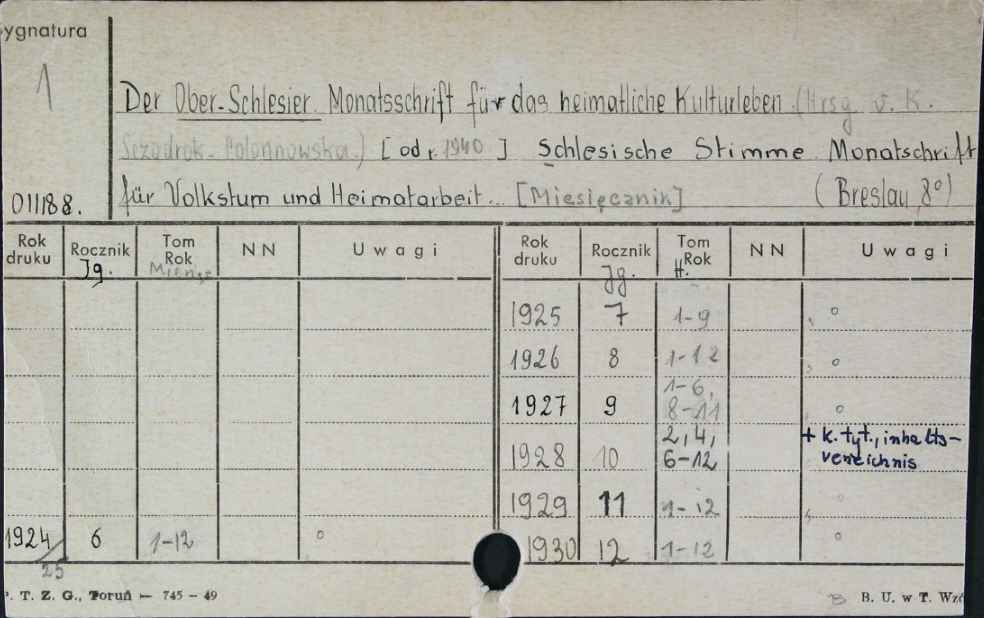 ygnatura
1
Der Ober-Schlesier. Monatsschrift für das heimatliche Kulturleben (Hrsg v. K.
Sczodrok-Polonnowska) [od r. 1940] Schlesische Stimme Monatschrift
für Volkstum und Heimatarbeit... [Miesięcznik] (Breslau, 8°)
011188.
Rok druku Rocznik Jg. Tom Rok NN Uwagi Rok druku Rocznik Jg. Tom H. Rok NN Uwagi
1925 7 1-9 °
1926 8 1-12 °
1927 9 1-6, 8-11 °
1928 10 2,4, 6-12 + k. tyt., inhalts-
verzeichnis
1929 11 1-12 °
1924/25 6 1-12 ° 1930 12 1-12 °
P. T. Z. G., Toruń — 745 — 49 B. U. w T. Wzó